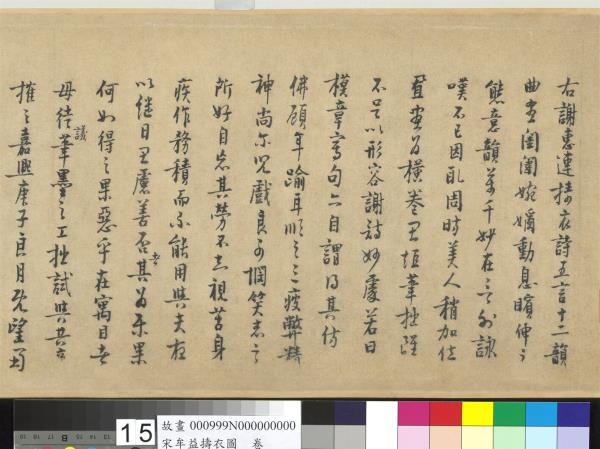 右謝惠連擣衣詩五言十二韻
曲盡閨閫婉嫕動息矉伸之
態意韻萬千妙在言外詠
嘆不已因取周昉美人稍加位
置畫為橫卷思短筆拙雖
不足以形容謝詩妙處若曰
模章寫句亦自謂得其仿
佛顧年踰耳順之三疲弊精
神尚爾兒戲良可憫笑志之
所好自忘其勞不知視苦身
疾作務積而不能用與夫夜
以繼日思慮善否者其為樂果
何如得之果惡乎在寓目者
毋徒議筆墨之工拙試與共商
搉之嘉熙庚子良月既望蜀
15
故畫 000999N000000000
宋牟益擣衣圖 卷